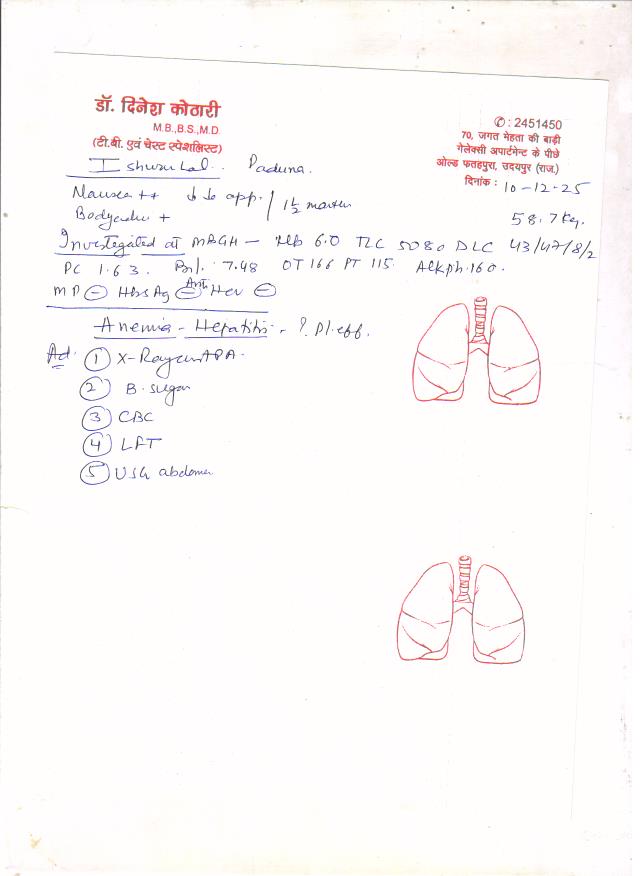 डॉ. दिनेश कोठारी
M.B.,B.S.,M.D.
(टी.बी. एवं चेस्ट स्पेशलिस्ट)
✆ : 2451450
70, जगत मेहता की बाड़ी
गेलेक्सी अपार्टमेन्ट के पीछे
ओल्ड फतहपुरा, उदयपुर (राज.)
दिनांक : 10-12-25
Ishwar Lal. Paduna.
Nausea ++ ↓↓ app. / 1½ month
Bodyache +
58.7 kg.
Investigated at MBGH - Hb 6.0 TLC 5080 DLC 43/47/8/2
PC 1.63. Bil. 7.48 OT 166 PT 115. Alk ph. 160.
MP ⊖ HbsAg ⊖ Anti Hcv ⊖
Anemia - Hepatitis - ? Pl. eff.
Ad. ① X-Ray PA.
② B. sugar
③ CBC
④ LFT
⑤ USG abdomen